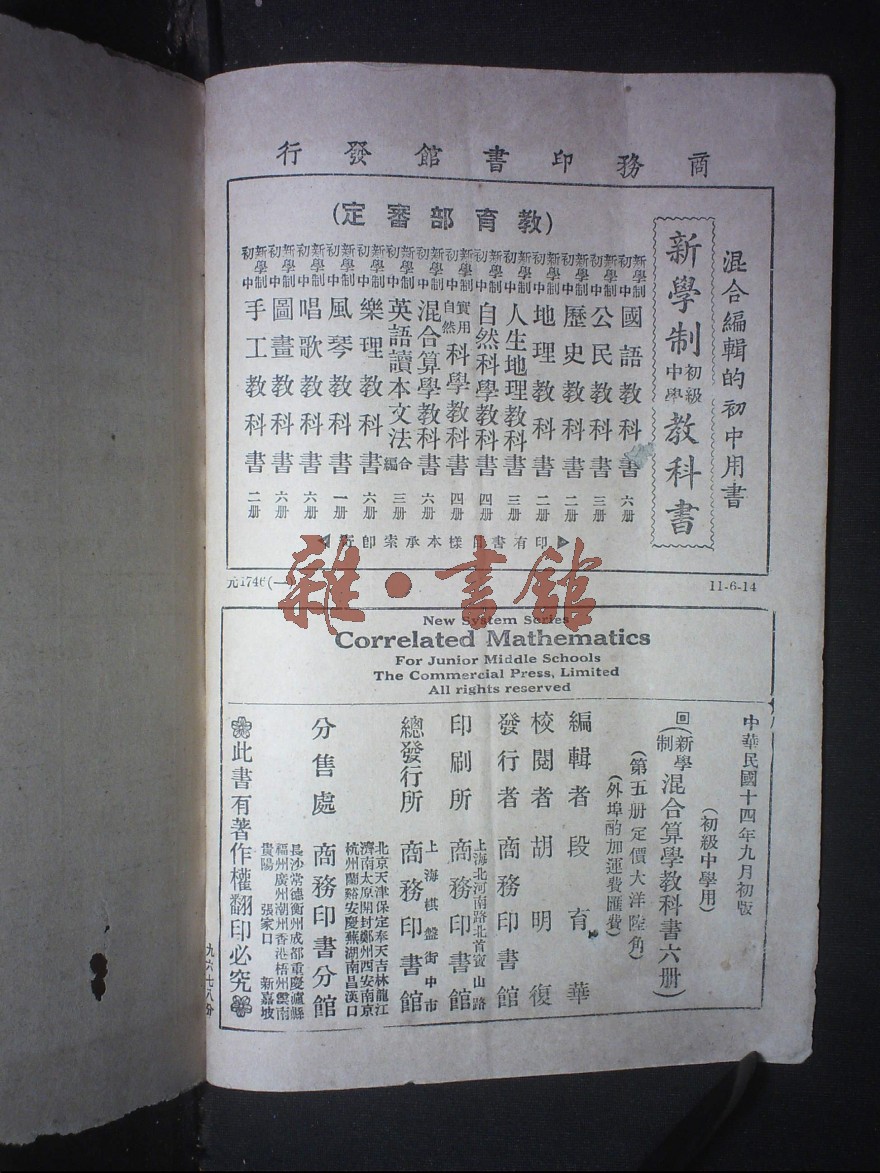 商務印書館發行
混合編輯的初中用書
新學制初級中學教科書
(教育部審定)
新學制初中國語教科書 六册
新學制初中公民教科書 三册
新學制初中歷史教科書 二册
新學制初中地理教科書 二册
新學制初中人生地理教科書 三册
新學制初中自然科學教科書 四册
新學制初中實用自然科學教科書 四册
新學制初中混合算學教科書 六册
新學制初中英語讀本文法合編 三册
新學制初中樂理教科書 六册
新學制初中風琴教科書 一册
新學制初中唱歌教科書 六册
新學制初中圖畫教科書 六册
新學制初中手工教科書 二册
印有書目樣本承索卽寄
元1746(一)
11-6-14
雜·書館
New System Series
Correlated Mathematics
For Junior Middle Schools
The Commercial Press, Limited
All rights reserved
中華民國十四年九月初版
(初級中學用)
回(新學制混合算學教科書六册)
(第五册定價大洋陸角)
(外埠酌加運費匯費)
編輯者 段育華
校閱者 胡明復
發行者 商務印書館
印刷所 上海北河南路北首寶山路 商務印書館
總發行所 上海棋盤街中市 商務印書館
分售處 商務印書分館
北京天津保定奉天吉林龍江
濟南太原開封鄭州西安南京
杭州蘭谿安慶蕪湖南昌漢口
長沙常德衡州成都重慶瀘縣
福州廣州潮州香港梧州雲南
貴陽 張家口 新嘉坡
此書有著作權翻印必究
九六七八分